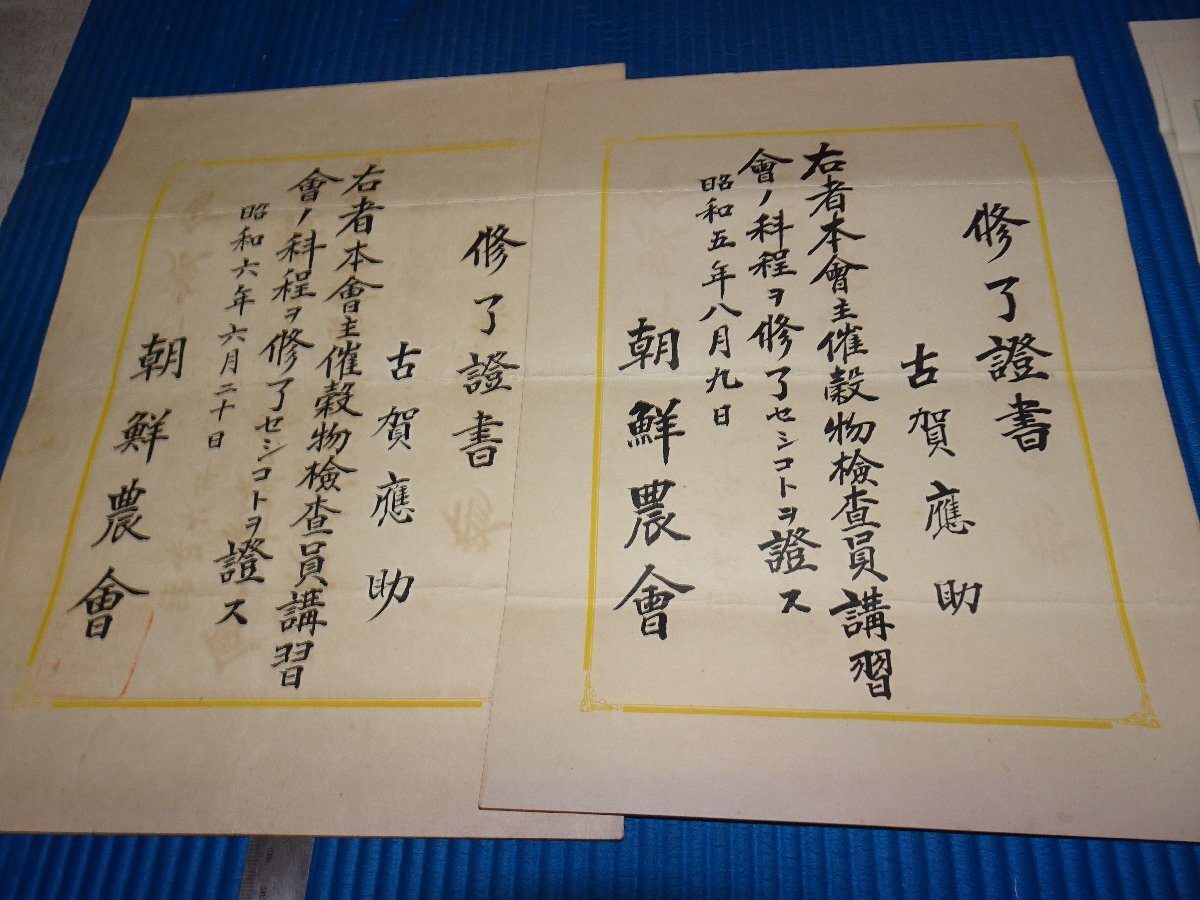 修了證書
古賀應助
右者本會主催穀物檢査員講習
會ノ科程ヲ修了セシコトヲ證ス
昭和五年八月九日
朝鮮農會
修了證書
古賀應助
右者本會主催穀物檢査員講習
會ノ科程ヲ修了セシコトヲ證ス
昭和六年六月二十日
朝鮮農會